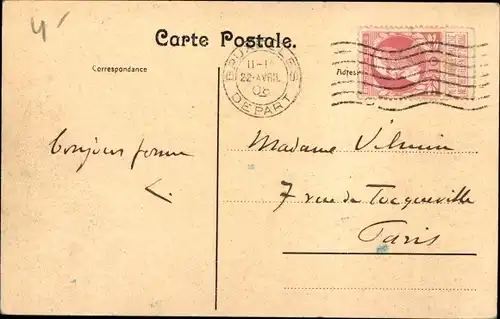 4
Carte Postale.
Correspondance
Adresse
BRUXELLES
11-1
22-AVRIL
DEPART
Bonjour forme
L.
Madame Vilmin
7 rue de Tocqueville
Paris